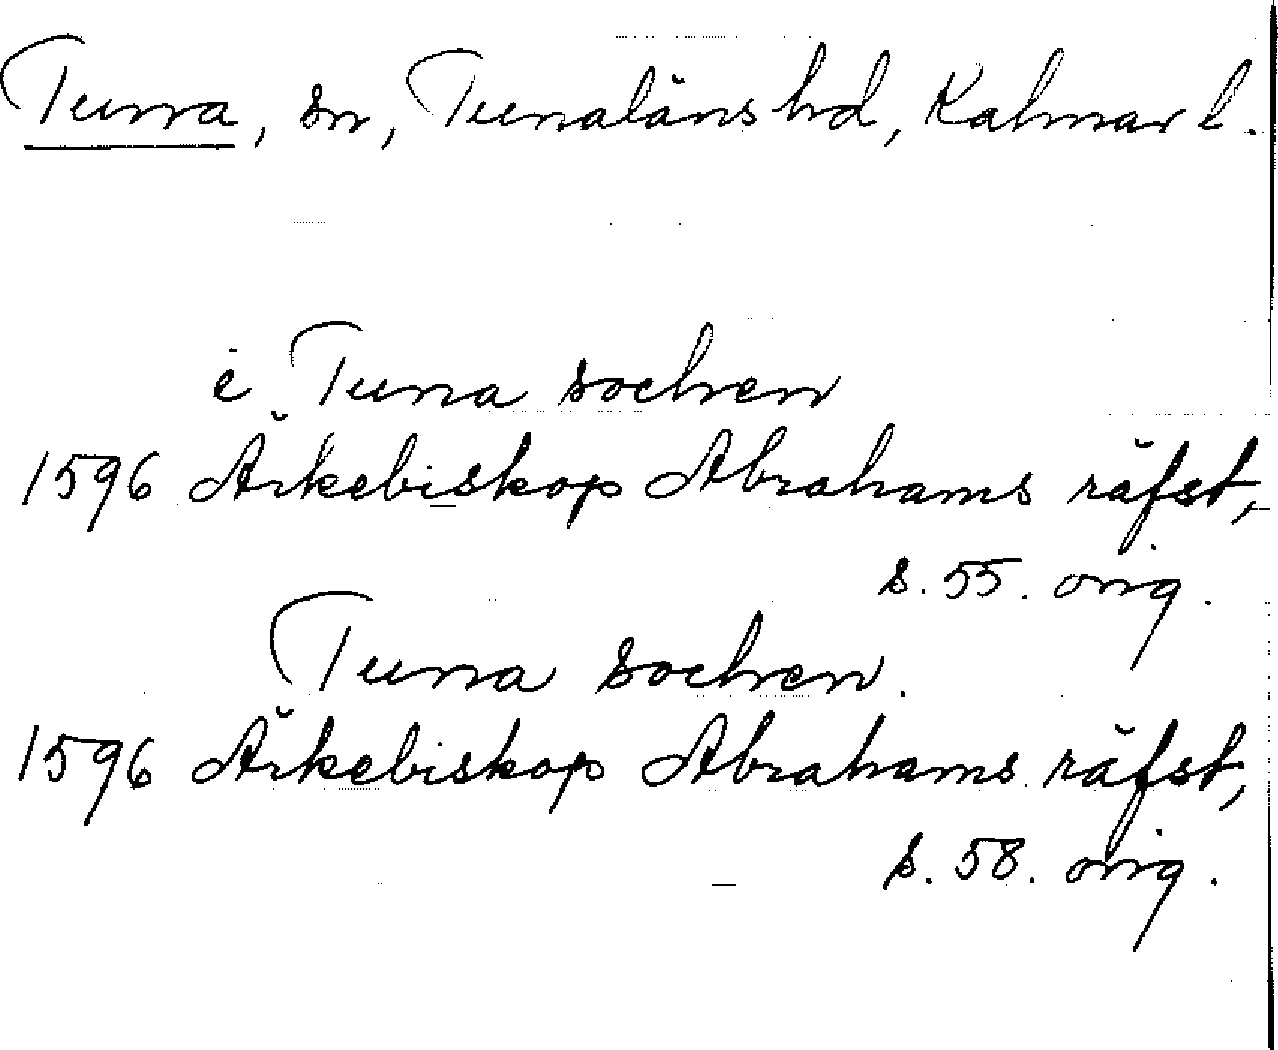 Tuna, sn, Tunaläns hd, Kalmar l.
i Tuna sochen
1596 Ärkebiskop Abrahams räfst,
s. 55. orig.
Tuna sochen.
1596 Ärkebiskop Abrahams räfst,
s. 58. orig.